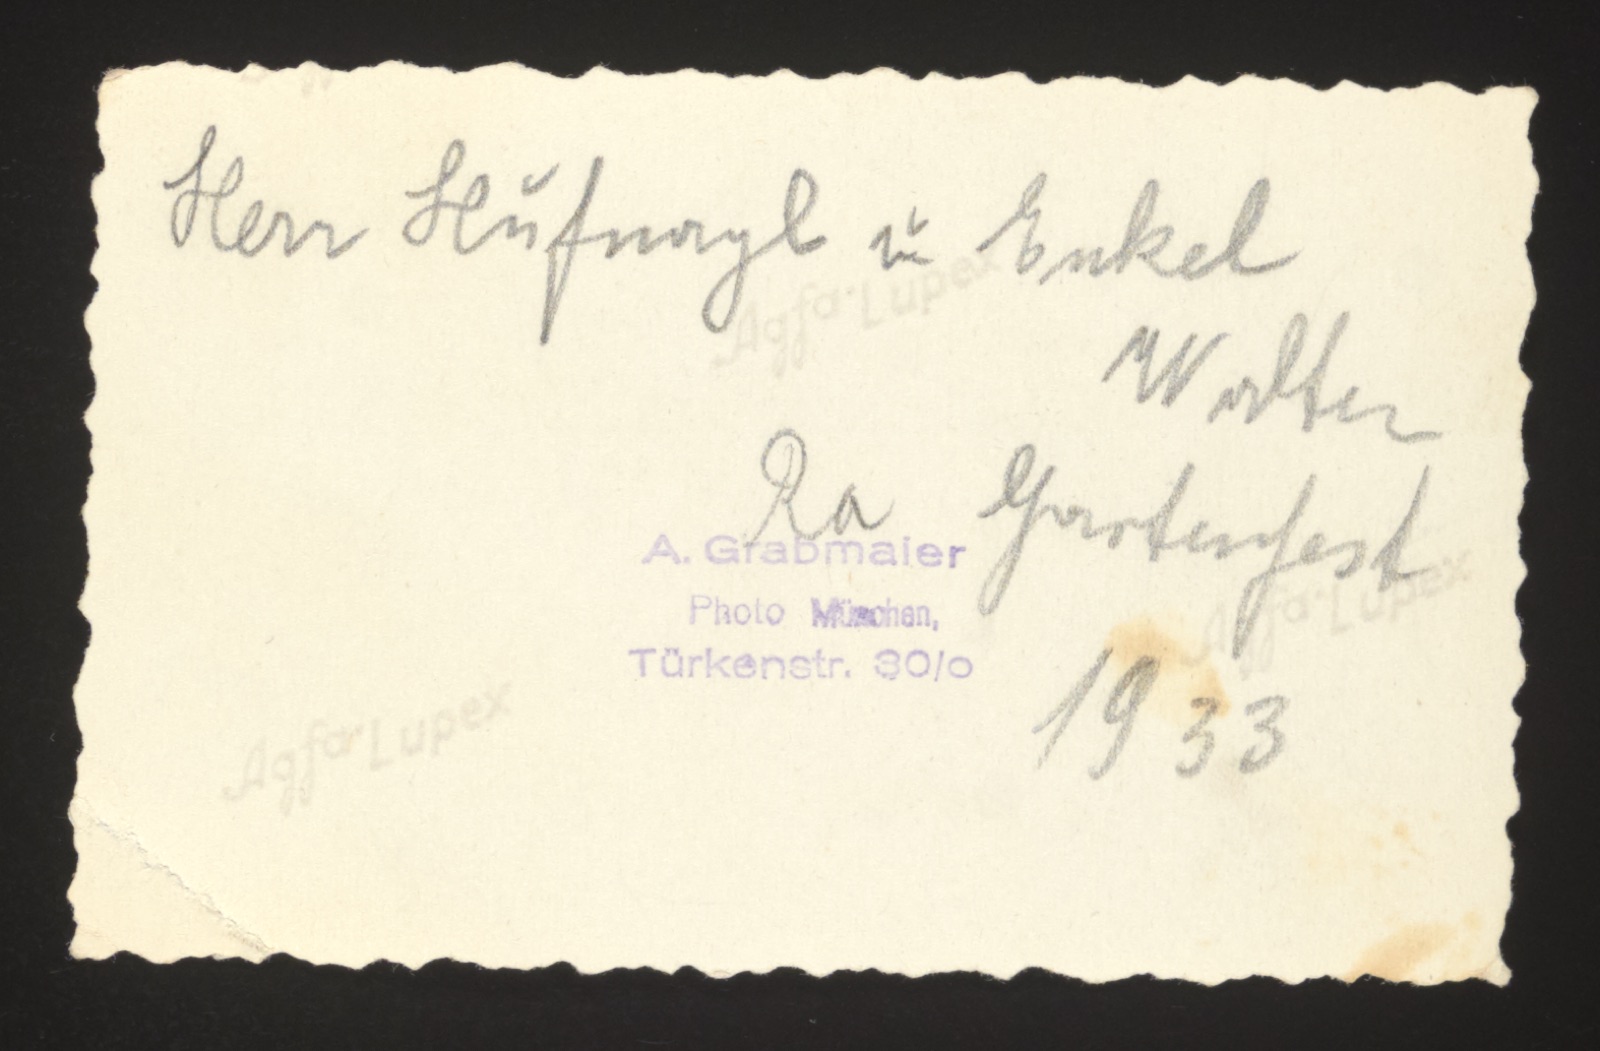 Herr Hufnagl u Enkel
Agfa-Lupex
Walter
Ra Gartenfest
A. Grabmaier
Agfa-Lupex
Photo München,
Türkenstr. 30/0
1933
Agfa-Lupex